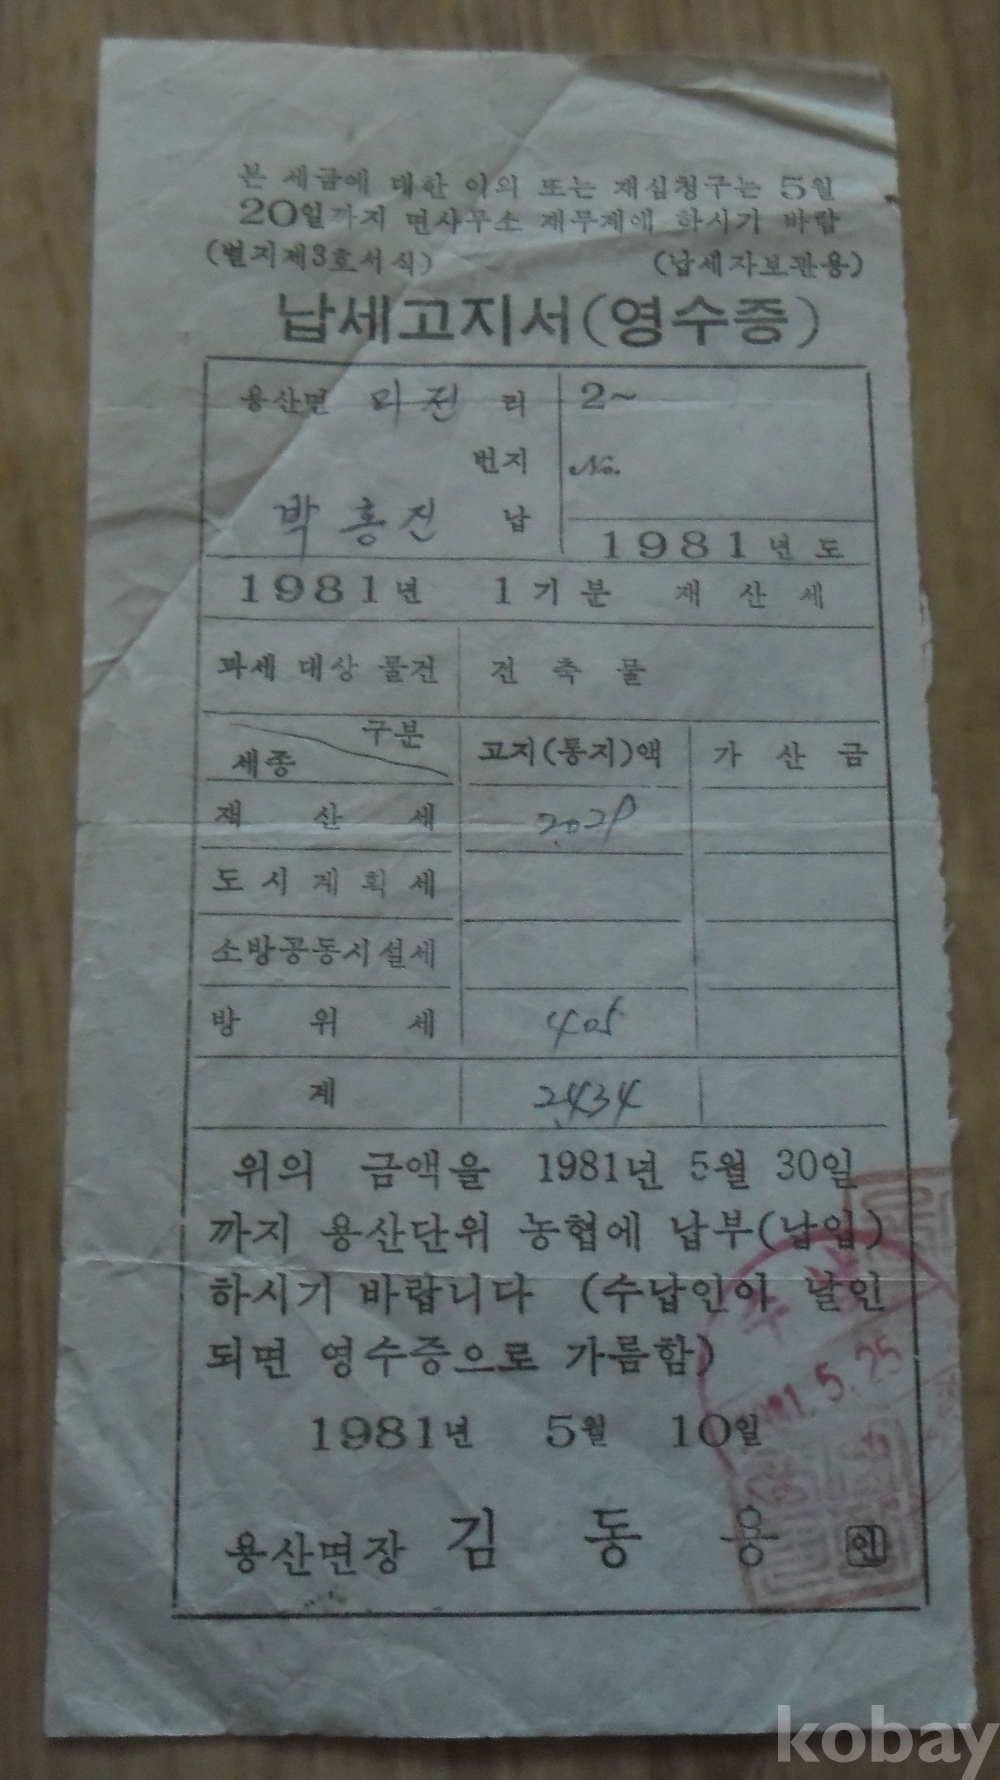 본 세금에 대한 이의 또는 재심청구는 5일
20일까지 면사무소 재무계에 하시기 바람
(별지제3호서식) (납세자보관용)
납세고지서(영수증)
용산면 미전 리 2~
번지 No.
박홍진 납
1981년도
1981년 1기분 재산세
과세 대상 물건 건축물
구분 고지(통지)액 가산금
세종
재산세 2,029
도시계획세
소방공동시설세
방위세 405
계 2,434
위의 금액을 1981년 5월 30일
까지 용산단위 농협에 납부(납입)
하시기 바랍니다 (수납인이 날인
되면 영수증으로 가름함)
1981년 5월 10일
81.5.25
용산면장 김동용 인
kobay